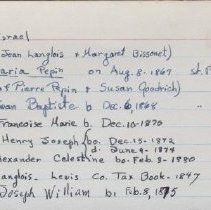 Israel
(Jean Langlois & Margaret Bissonet)
Maria Pepin on Aug. 8. 1867 st. P
of Pierre Pepin & Susan Goodrich)
Jean Baptiste b Dec. 6, 1868 "
Francoise Marie b. Dec. 10-1870
Henry Joseph bo. Dec. 15-1872
d. June 9-1874
Alexander Celestine bo. Feb. 3-1880
Langlois- Lewis Co. Tax Book-1847
Joseph William b. Feb. 8, 1875